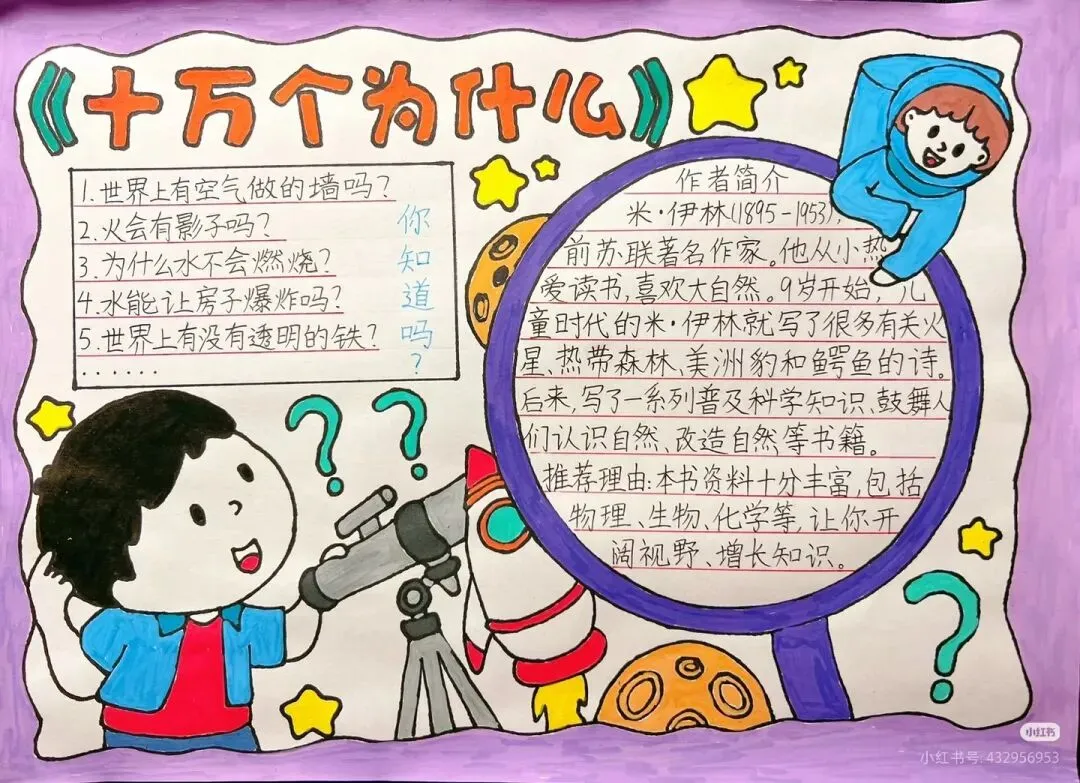 《十万个为什么》
1.世界上有空气做的墙吗?
2.火会有影子吗?
3.为什么水不会燃烧?
4.水能让房子爆炸吗?
5.世界上有没有透明的铁?
......
你知道吗?
作者简介
米·伊林(1895-1953),
前苏联著名作家。他从小热
爱读书,喜欢大自然。9岁开始,儿
童时代的米·伊林就写了很多有关火
星、热带森林、美洲豹和鳄鱼的诗。
后来,写了一系列普及科学知识、鼓舞人
们认识自然、改造自然等书籍。
推荐理由:本书资料十分丰富,包括
物理、生物、化学等,让你开
阔视野、增长知识。
小红书
小红书号:432956953